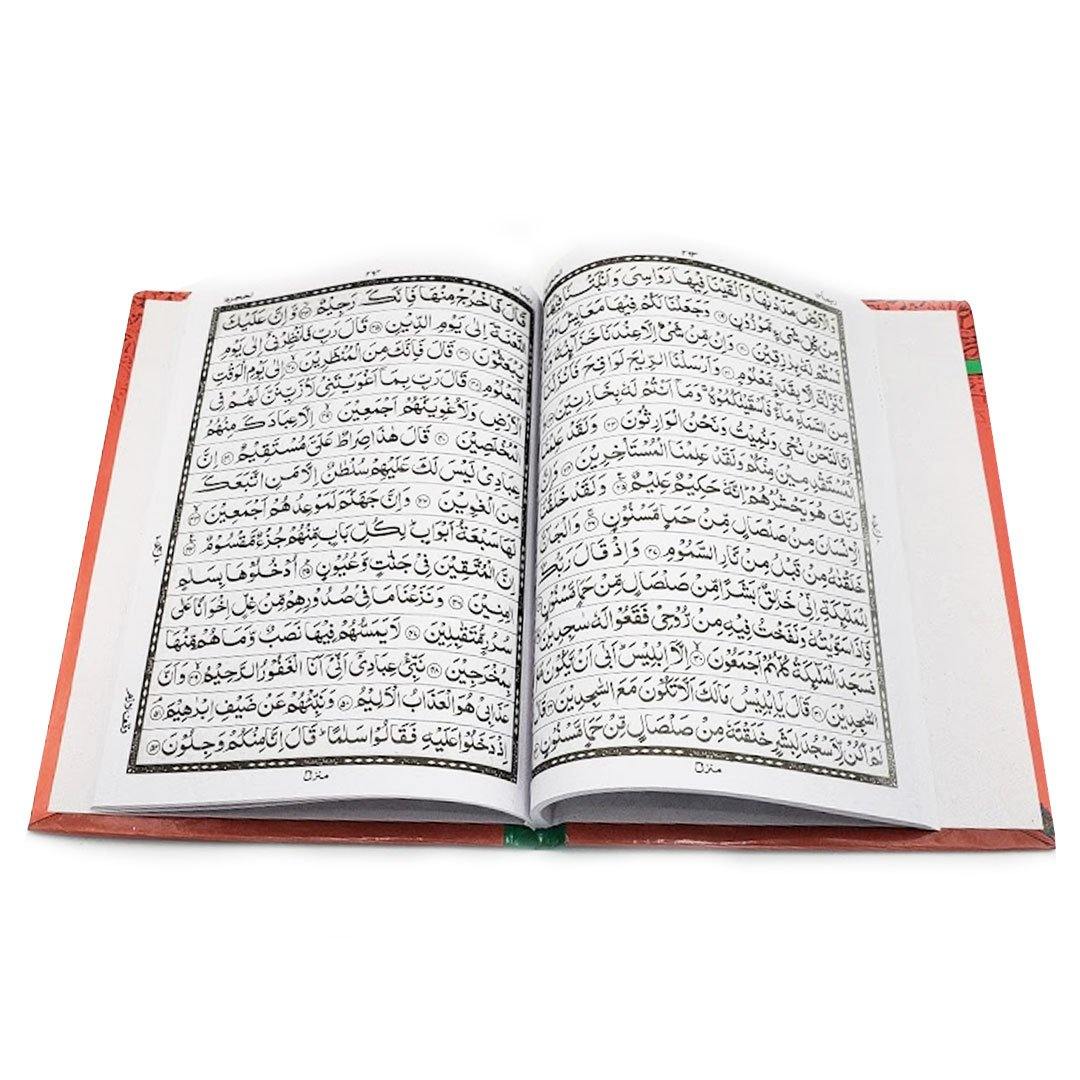 ۲۶۳
وَالْاَرْضَ مَدَدْنٰهَا وَاَلْقَيْنَا فِيْهَا رَوَاسِيَ وَاَنْۢبَتْنَا فِيْهَا
مِنْ كُلِّ شَيْءٍ مَّوْزُوْنٍ ۝۱۹ وَجَعَلْنَا لَكُمْ فِيْهَا مَعَايِشَ
لَسْتُمْ لَهٗ بِرٰزِقِيْنَ ۝۲۰ وَاِنْ مِّنْ شَيْءٍ اِلَّا عِنْدَنَا خَزَآئِنُهٗ
نُنَزِّلُهٗٓ اِلَّا بِقَدَرٍ مَّعْلُوْمٍ ۝۲۱ وَاَرْسَلْنَا الرِّيٰحَ لَوَاقِحَ فَاَنْزَلْنَا
مِنَ السَّمَآءِ مَآءً فَاَسْقَيْنٰكُمُوْهُ ۚ وَمَآ اَنْتُمْ لَهٗ بِخٰزِنِيْنَ ۝۲۲
اِنَّا لَنَحْنُ نُحْيٖ وَنُمِيْتُ وَنَحْنُ الْوٰرِثُوْنَ ۝۲۳ وَلَقَدْ عَلِمْنَا
الْمُسْتَقْدِمِيْنَ مِنْكُمْ وَلَقَدْ عَلِمْنَا الْمُسْتَاْخِرِيْنَ ۝۲۴
رَبَّكَ هُوَ يَحْشُرُهُمْ ؕ اِنَّهٗ حَكِيْمٌ عَلِيْمٌ ۝۲۵ وَلَقَدْ خَلَقْنَا
الْاِنْسَانَ مِنْ صَلْصَالٍ مِّنْ حَمَاٍ مَّسْنُوْنٍ ۝۲۶ وَالْجَآنَّ
خَلَقْنٰهُ مِنْ قَبْلُ مِنْ نَّارِ السَّمُوْمِ ۝۲۷ وَاِذْ قَالَ رَبُّكَ
لِلْمَلٰٓئِكَةِ اِنِّيْ خَالِقٌۢ بَشَرًا مِّنْ صَلْصَالٍ مِّنْ حَمَاٍ مَّسْنُوْنٍ ۝۲۸
فَاِذَا سَوَّيْتُهٗ وَنَفَخْتُ فِيْهِ مِنْ رُّوْحِيْ فَقَعُوْا لَهٗ سٰجِدِيْنَ ۝۲۹
فَسَجَدَ الْمَلٰٓئِكَةُ كُلُّهُمْ اَجْمَعُوْنَ ۝۳۰ اِلَّآ اِبْلِيْسَ ؕ اَبٰٓى اَنْ يَّكُوْنَ مَعَ
السّٰجِدِيْنَ ۝۳۱ قَالَ يٰٓاِبْلِيْسُ مَا لَكَ اَلَّا تَكُوْنَ مَعَ السّٰجِدِيْنَ ۝۳۲ قَالَ
لَمْ اَكُنْ لِّاَسْجُدَ لِبَشَرٍ خَلَقْتَهٗ مِنْ صَلْصَالٍ مِّنْ حَمَاٍ مَّسْنُوْنٍ ۝۳۳
منزل ۳
قَالَ فَاخْرُجْ مِنْهَا فَاِنَّكَ رَجِيْمٌ ۝۳۴ وَّاِنَّ عَلَيْكَ
اللَّعْنَةَ اِلٰى يَوْمِ الدِّيْنِ ۝۳۵ قَالَ رَبِّ فَاَنْظِرْنِيْٓ اِلٰى يَوْمِ
يُبْعَثُوْنَ ۝۳۶ قَالَ فَاِنَّكَ مِنَ الْمُنْظَرِيْنَ ۝۳۷ اِلٰى يَوْمِ الْوَقْتِ
الْمَعْلُوْمِ ۝۳۸ قَالَ رَبِّ بِمَآ اَغْوَيْتَنِيْ لَاُزَيِّنَنَّ لَهُمْ فِي
الْاَرْضِ وَلَاُغْوِيَنَّهُمْ اَجْمَعِيْنَ ۝۳۹ اِلَّا عِبَادَكَ مِنْهُمُ
الْمُخْلَصِيْنَ ۝۴۰ قَالَ هٰذَا صِرَاطٌ عَلَيَّ مُسْتَقِيْمٌ ۝۴۱ اِنَّ
عِبَادِيْ لَيْسَ لَكَ عَلَيْهِمْ سُلْطٰنٌ اِلَّا مَنِ اتَّبَعَكَ
مِنَ الْغٰوِيْنَ ۝۴۲ وَاِنَّ جَهَنَّمَ لَمَوْعِدُهُمْ اَجْمَعِيْنَ ۝۴۳
لَهَا سَبْعَةُ اَبْوَابٍ ؕ لِكُلِّ بَابٍ مِّنْهُمْ جُزْءٌ مَّقْسُوْمٌ ۝۴۴
اِنَّ الْمُتَّقِيْنَ فِيْ جَنّٰتٍ وَّعُيُوْنٍ ۝۴۵ اُدْخُلُوْهَا بِسَلٰمٍ
اٰمِنِيْنَ ۝۴۶ وَنَزَعْنَا مَا فِيْ صُدُوْرِهِمْ مِّنْ غِلٍّ اِخْوَانًا عَلٰى
سُرُرٍ مُّتَقٰبِلِيْنَ ۝۴۷ لَا يَمَسُّهُمْ فِيْهَا نَصَبٌ وَّمَا هُمْ مِّنْهَا
بِمُخْرَجِيْنَ ۝۴۸ نَبِّئْ عِبَادِيْٓ اَنِّيْٓ اَنَا الْغَفُوْرُ الرَّحِيْمُ ۝۴۹ وَاَنَّ
عَذَابِيْ هُوَ الْعَذَابُ الْاَلِيْمُ ۝۵۰ وَنَبِّئْهُمْ عَنْ ضَيْفِ اِبْرٰهِيْمَ ۝۵۱
اِذْ دَخَلُوْا عَلَيْهِ فَقَالُوْا سَلٰمًا ؕ قَالَ اِنَّا مِنْكُمْ وَجِلُوْنَ ۝۵۲
منزل ۳